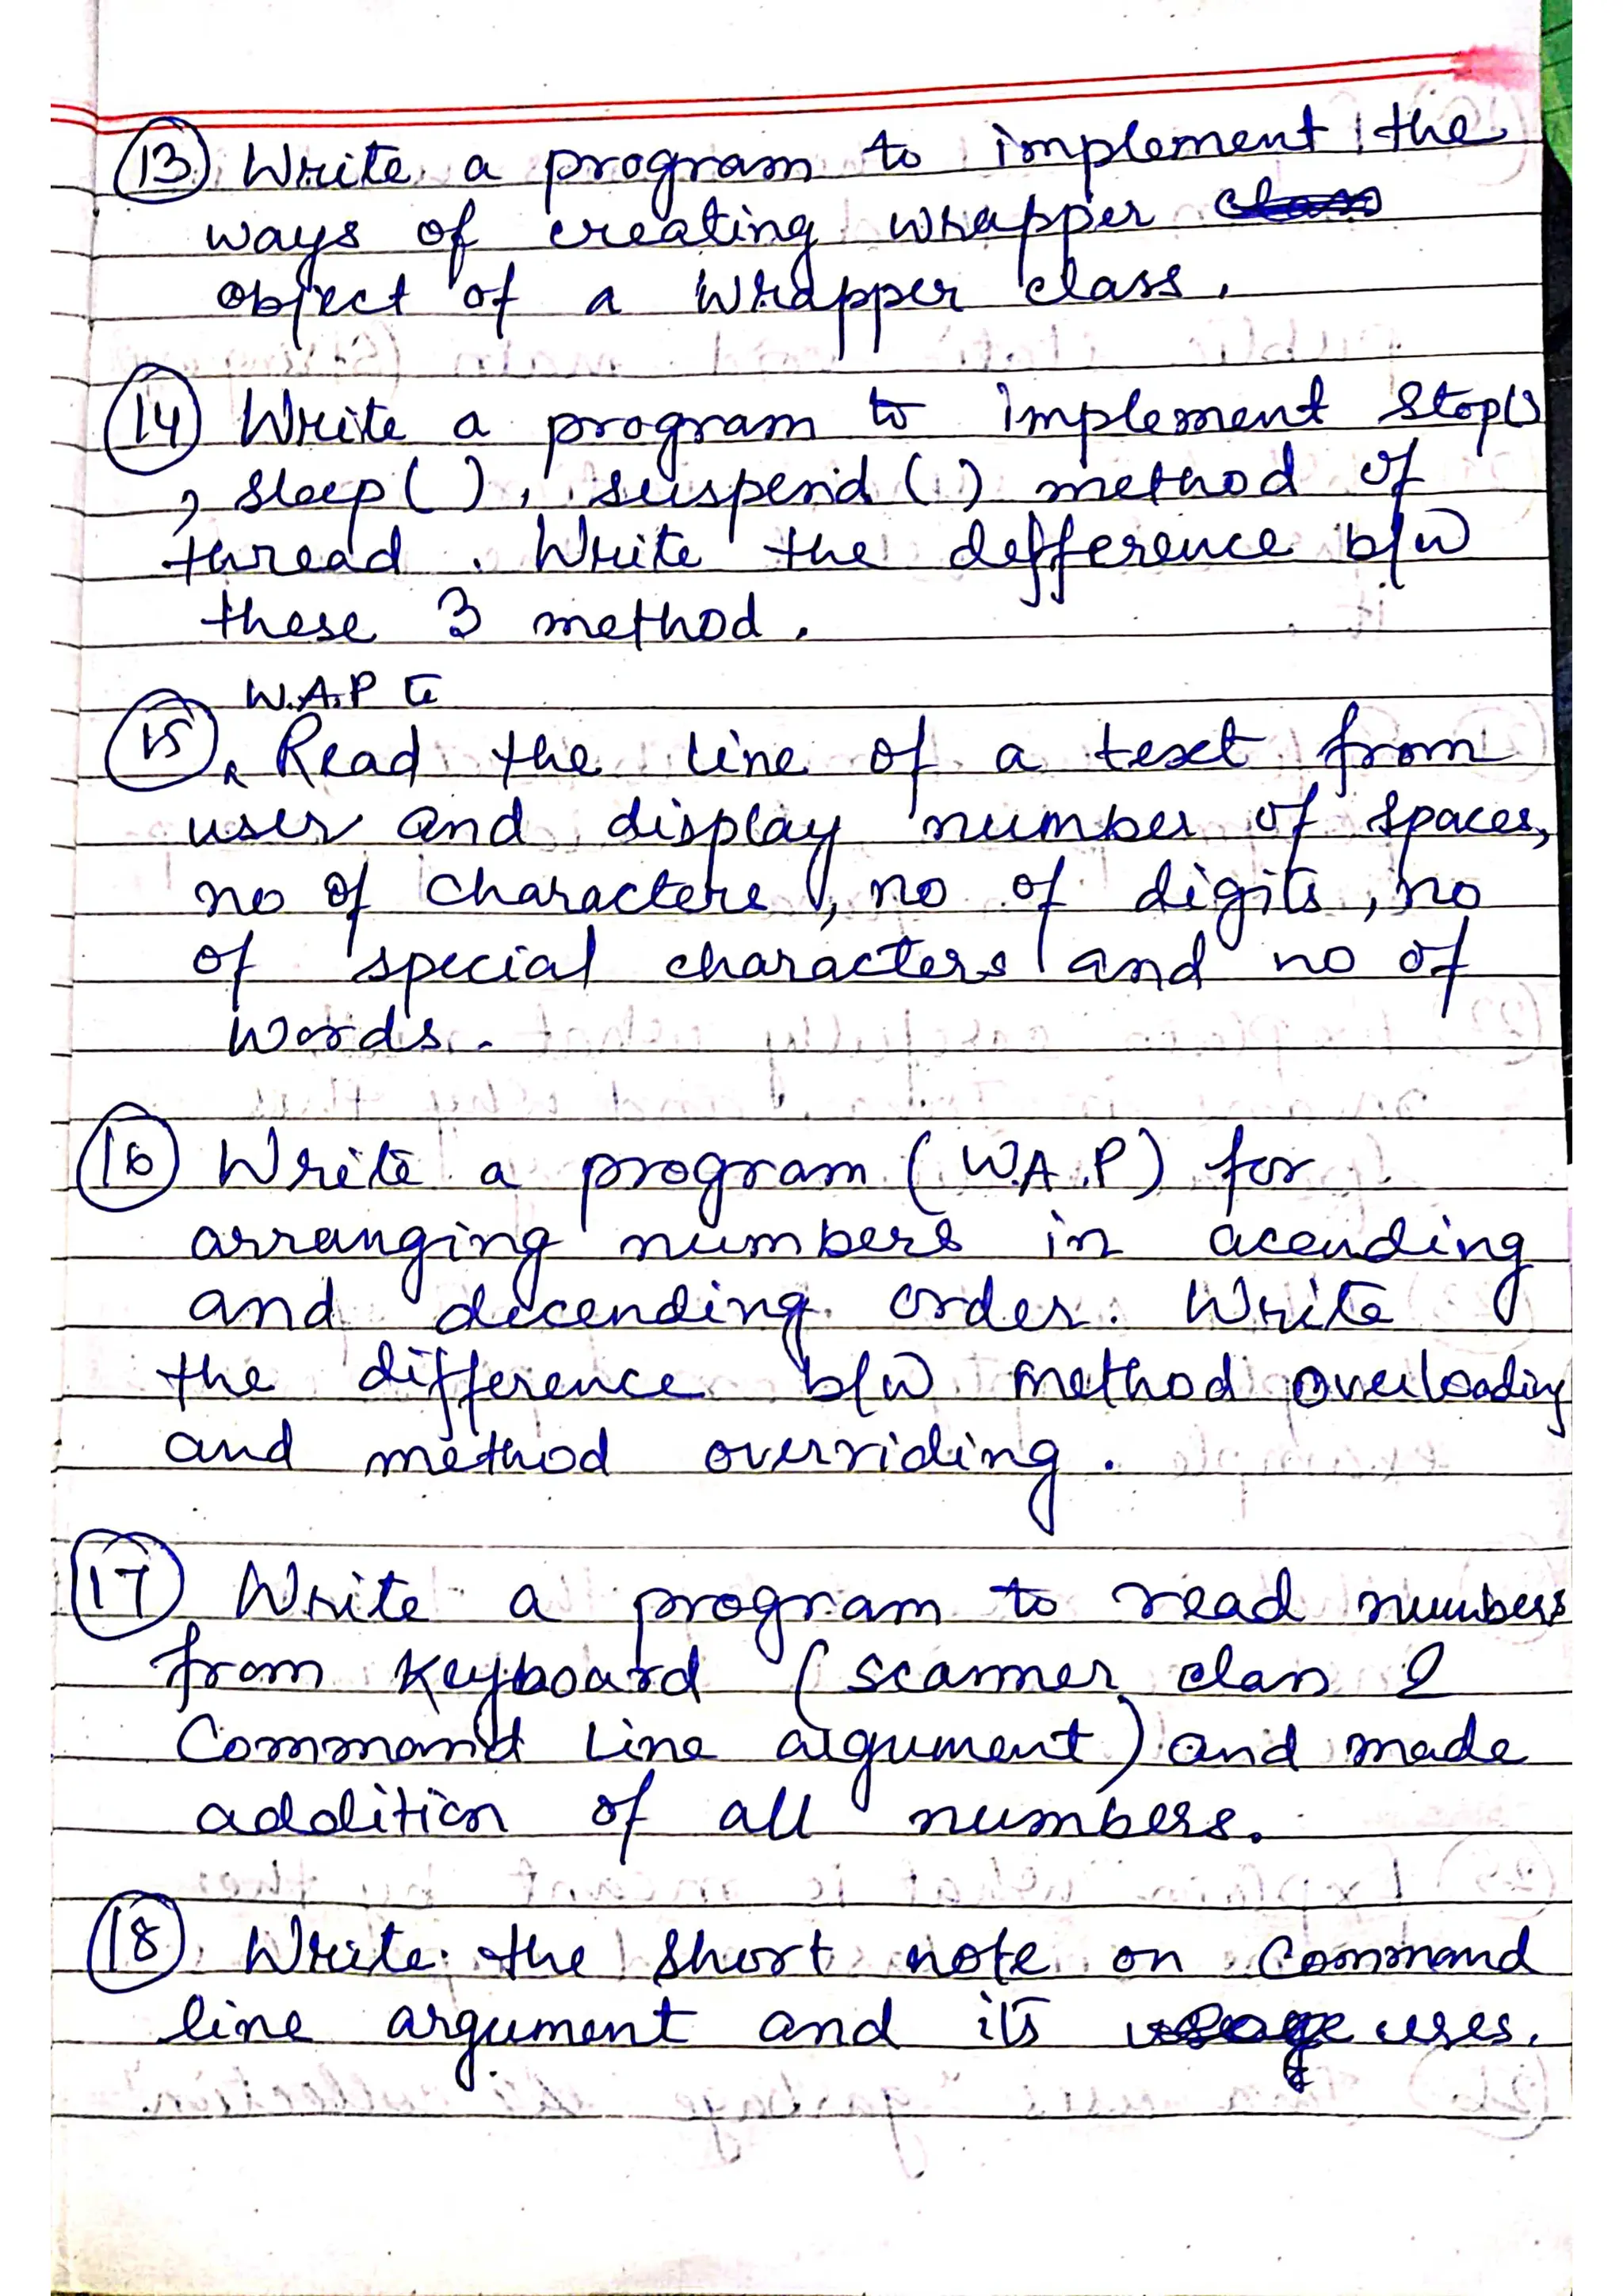 13 Write a program to implement the
ways of creating wrapper
object of a wrapper class.
14 Write a program to implement stop()
, sleep(), suspend() method of
thread. Write the defference b/w
these 3 method.
W.A.P to
15 Read the line of a text from
user and display number of spaces,
no of characters, no of digits, no
of special characters and no of
words.
16 Write a program (W.A.P) for
arranging numbers in acending
and decending order. Write
the difference b/w method overloading
and method overriding.
17 Write a program to read numbers
from Keyboard (scanner class &
Command Line argument) and made
addition of all numbers.
18 Write the short note on Command
line argument and its uses.